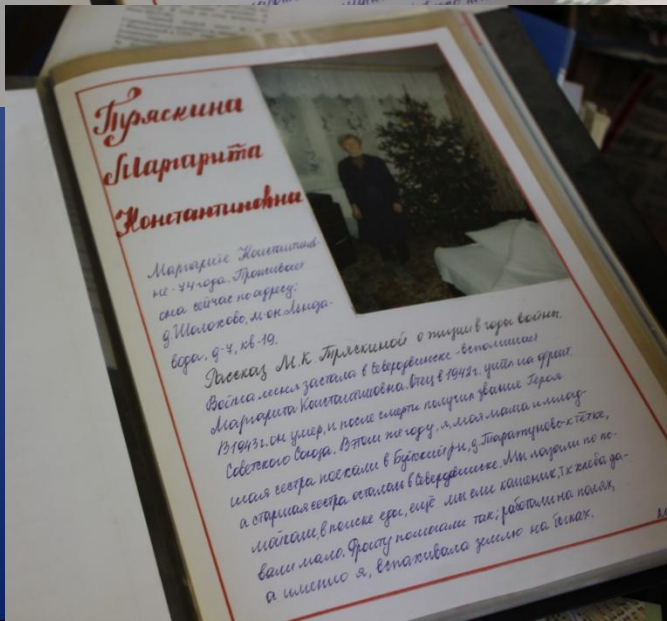 Тряскина
Маргарита
Константиновна
Маргарите Константинов-
не - 74 года. Проживает
она сейчас по адресу:
д. Шолохово, м-он Льнза-
вода, д-7, кв-19.
Рассказ М.К. Тряскиной о жизни в годы войны.
Война меня застала в Северодвинске - вспоминает
Маргарита Константиновна. Отец в 1942г. ушёл на фронт.
В 1943г. он умер, и после смерти получил звание Героя
Советского Союза. В этом же году, я, моя мама и млад-
шая сестра поехали в д. к тётке,
а старшая сестра осталась в Северодвинске. Мы лазали по по-
мойкам, в поиске еды, ещё мы ели т.к. хлеба да-
вали мало. Фронту помогали так: работали на полях,
а именно я, вспахивала землю на быках.